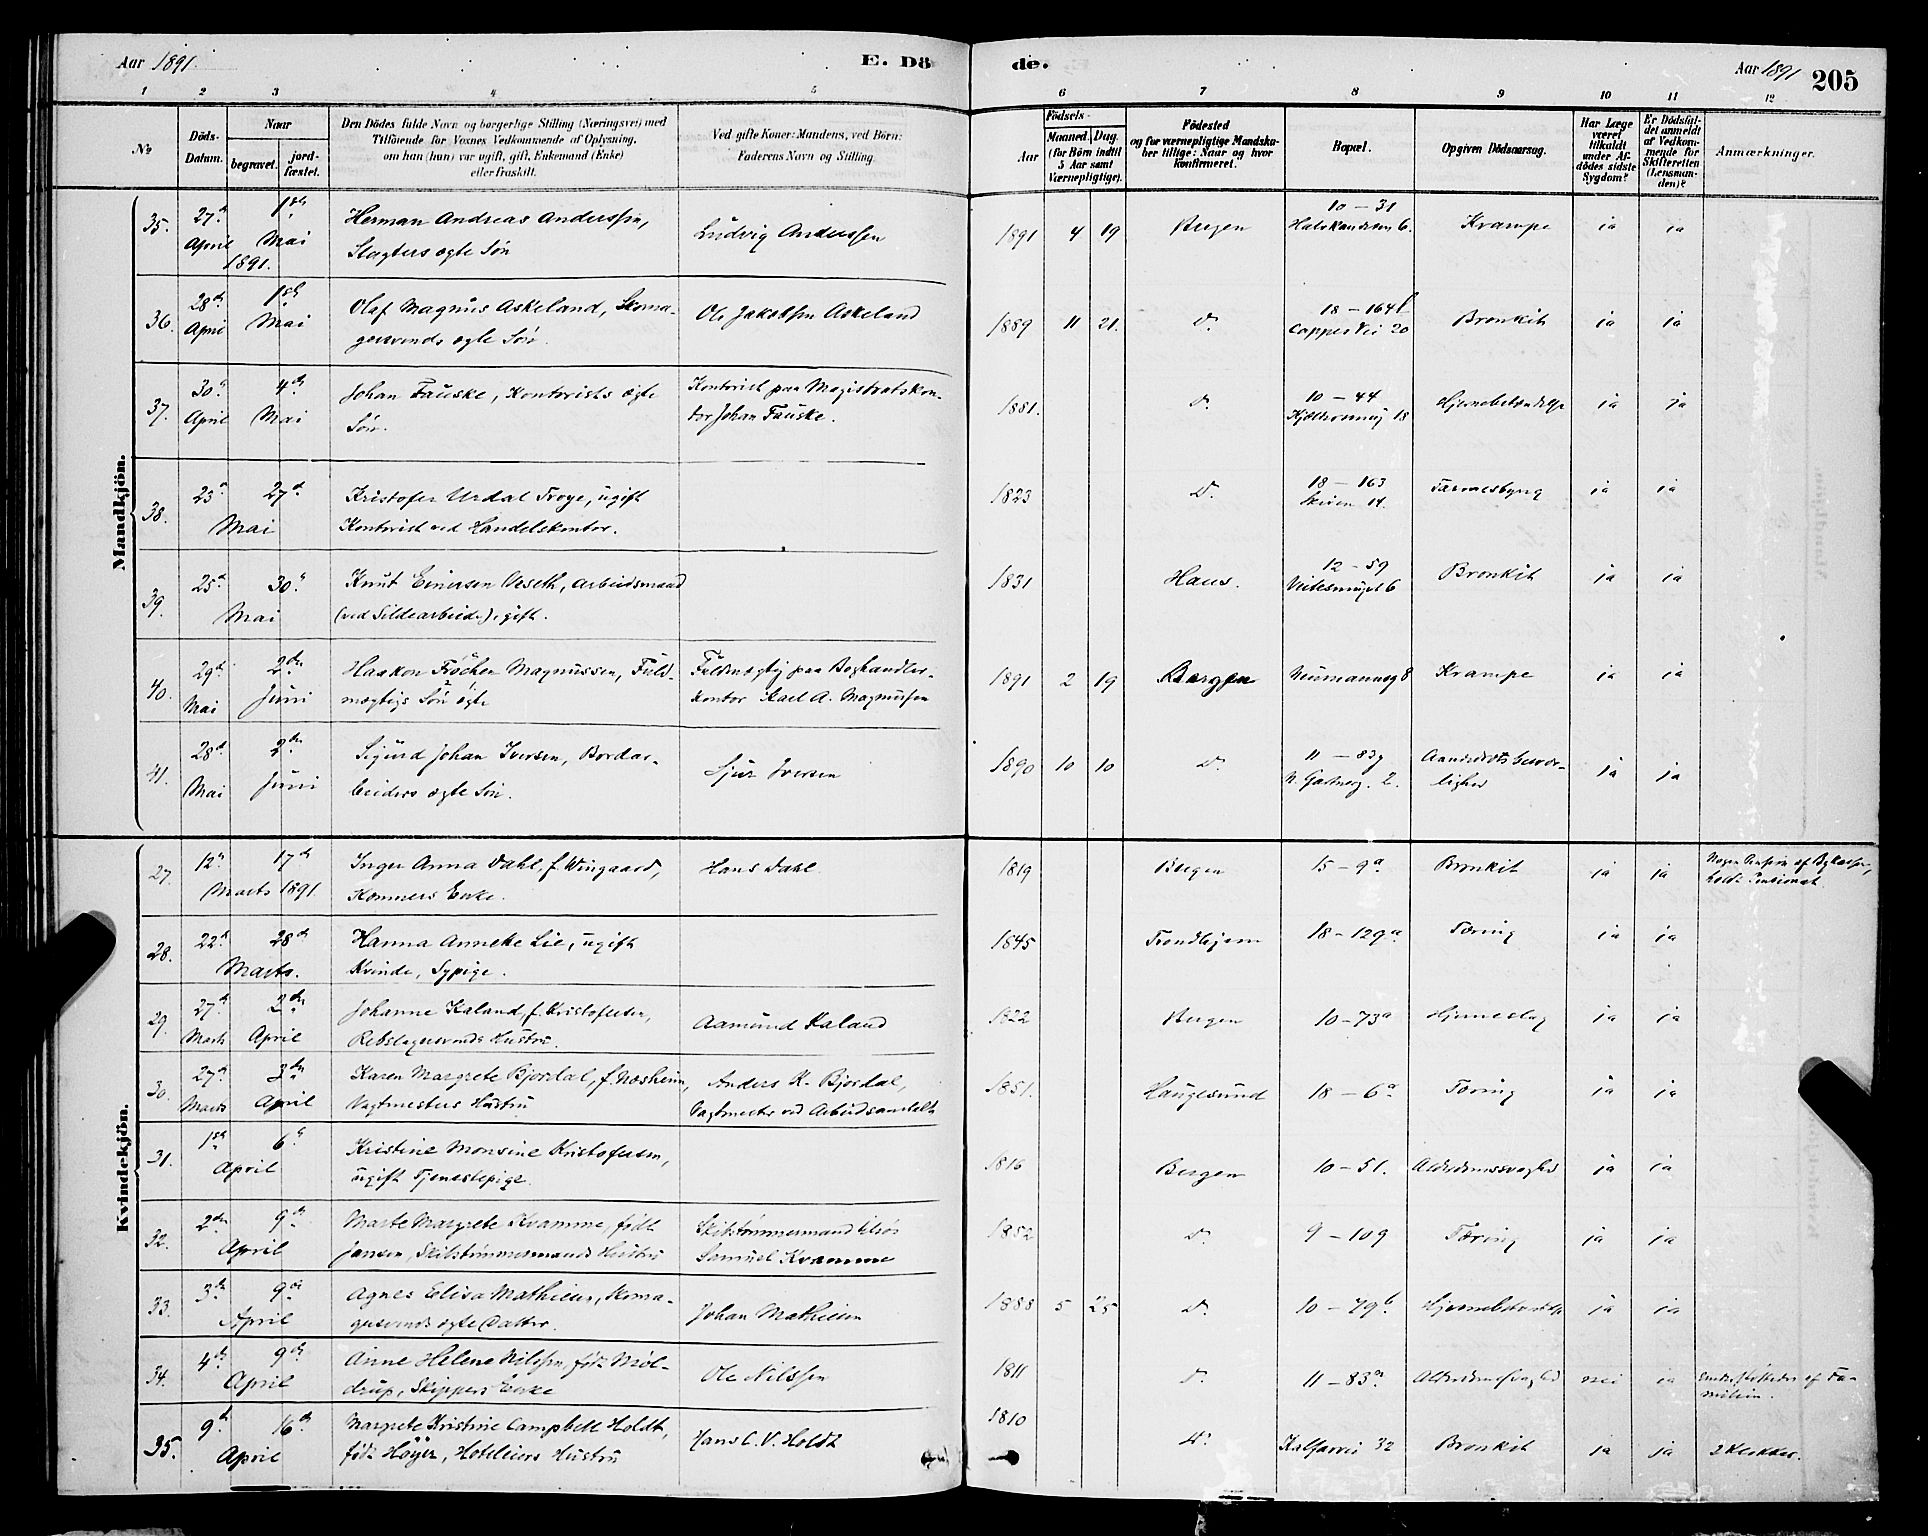 Aar 1891. E. Dö de. Aar 1891 205
1 2 3 4 5 6 7 8 9 10 11 12
No
Döds-Datum.
Naar
begravet.
jord-fæstet.
Den Dödes fulde Navn og borgerlige Stilling (Næringsvei) med
Tilföiende for Voxnes Vedkommende af Oplysning,
om han (hun) var ugift, gift, Enkemand (Enke)
eller fraskilt.
Ved gifte Koner: Mandens, ved Börn:
Faderens Navn og Stilling.
Födsels-
Aar
Maaned. Dag.
(for Börn indtil
5 Aar samt
Værnepligtige).
Födested
og for værnepligtige Mandska-
ber tillige: Naar og hvor
konfirmeret.
Bopæl.
Opgiven Dödsaarsag.
Har Læge
været
tilkaldt
under Af-
dödes sidste
Sygdom?
Er Dödsfal-
det anmeldt
af Vedkom-
mende for
Skifteretten
(Lensman-
den)?
Anmærkninger.
Mandkjön.
35. 27de April 1ste Mai 1891. Herman Andreas Anderssen, Ludvig Anderssen 1891 4 19 Bergen 10 — 31 Krampe ja ja
Slagters ægte Søn
36. 28de April 1ste Mai Olaf Magnus Askeland, Skoma- Ole Jakobsen Askeland 1889 11 21. Do. 18 — 164 Bronkit ja ja
gersvends ægte Søn.
37. 30te April 4de Mai Johan Fauske, Kontorists ægte Kontorist paa Magistratskon- 1881. Do. 10 — 44 Hjernebetændelse ja ja
Søn. tor Johan Fauske. 18
38. 23de 27de Mai Kristofer Urdal Troye, ugift 1823 Do. 18 — 163 ja ja
Kontorist ved Handelskontor. Skiven 14.
39. 25de 30te Mai Knut Einersen Veseth, Arbeidsmand 1831 Haus. 12 - 59 Bronkit ja ja
(ved Sildearbeide), gift.
40. 29de Mai 2den Juni Haakon Magnussen, Fuld- Fuldmægtig paa Boghandler- 1891 2 19 Bergen Neumannsg 8 Krampe ja ja
mægtigs Søn ægte kontor Karl A. Magnussen
41. 28de Mai 2den Juni Sigurd Johan Iversen, Bordar- Sjur Iversen 1890 10 10 Do. 11 — 83 Aandedræts besvær- ja ja
beiders ægte Søn. 2. lighed
Kvindekjön.
27. 12te 17de Marts 1891. Inger Anna Dahl, f. Wingaard, Hans Dahl 1819 Bergen 15 — 9a Bronkit ja ja
Enke.
28. 22de 28de Marts. Hanna Anneke Lie, ugift 1845 Trondhjem 18 — 129a Tæring ja ja
Kvinde, Sypige.
29. 27de Marts 2den April Johanne Kaland, f. Kristofersen, Aamund Kaland 1822 Bergen 10 — 73a Hjerneslag ja ja
Rebslagersvends Hustru.
30. 27de Marts 3die April Karen Margrete Bjordal, f. Næsheim, Anders K. Bjordal, 1851. Haugesund 18 — 6a Tæring ja ja
Vagtmesters Hustru Vagtmester ved Arbeidsanstalt
31. 1ste 6te April Kristine Monsine Kristofersen, 1816 Bergen 10 — 51. Alderdomssvaghed ja ja
ugift Tjenestepige.
32. 2den 9de April Marte Margrete Kvamme, født Skibstømmermand 1852 Do. 9 — 109 Tæring ja ja
Jansen, Skibstømmermands Hustru Samuel Kvamme
33. 3die 9de April Agnes Elisa Mathiesen, Skoma- Johan Mathiesen 1888 5 25 Do. 10 — 79b Hjernebetændelse ja ja
gersvends ægte Datter.
34. 4de 9de April Anne Helene Nilssen, født Møl- Ole Nilssen 1811 Do. 11 — 83a Alderdomssvaghed nei ja af Fa-
drup, Skippers Enke milien.
35. 9de 16de April Margrete Kristine Campbell Holdt, Hans C. V. Holdt 1810 Do. Kalfarvei 32 Bronkit ja ja 2 Klokker.
født Høyer, Hoteleiers Hustru